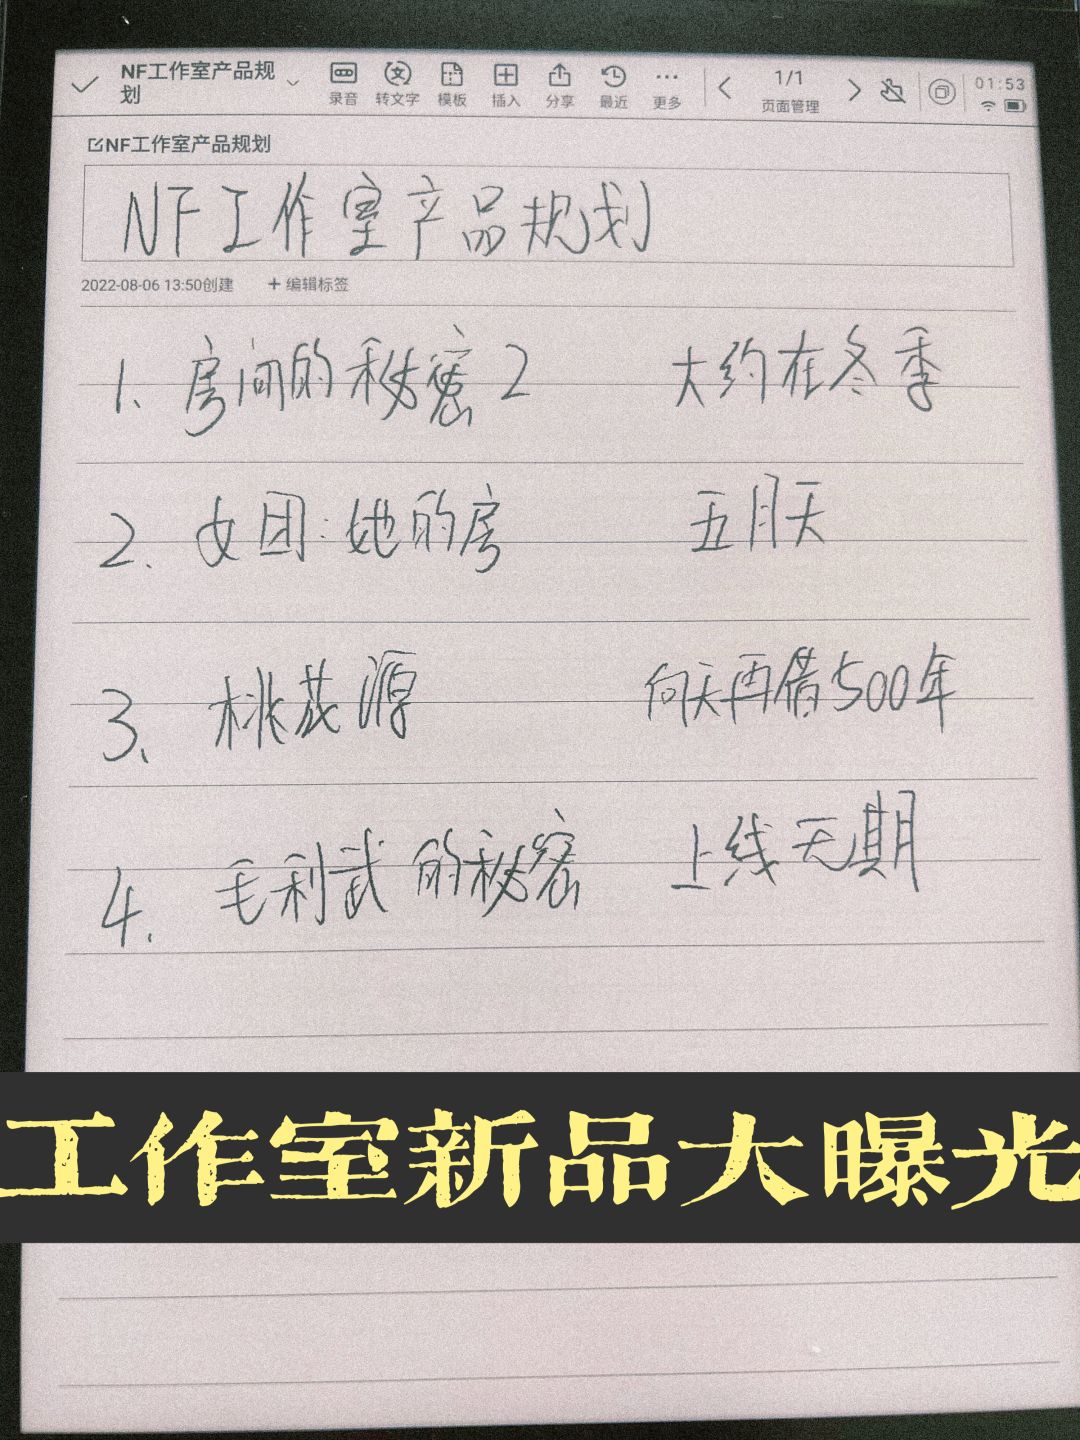 NF工作室产品规划
录音 转文字 模板 插入 分享 最近 更多 1/1 页面管理 01:53
NF工作室产品规划
NF工作室产品规划
2022-08-06 13:50创建 + 编辑标签
1、房间的秘密2 大约在冬季
2、女团:她的房 五月天
3、桃花源 向天再借500年
4、毛利武的秘密 上线无期
工作室新品大曝光